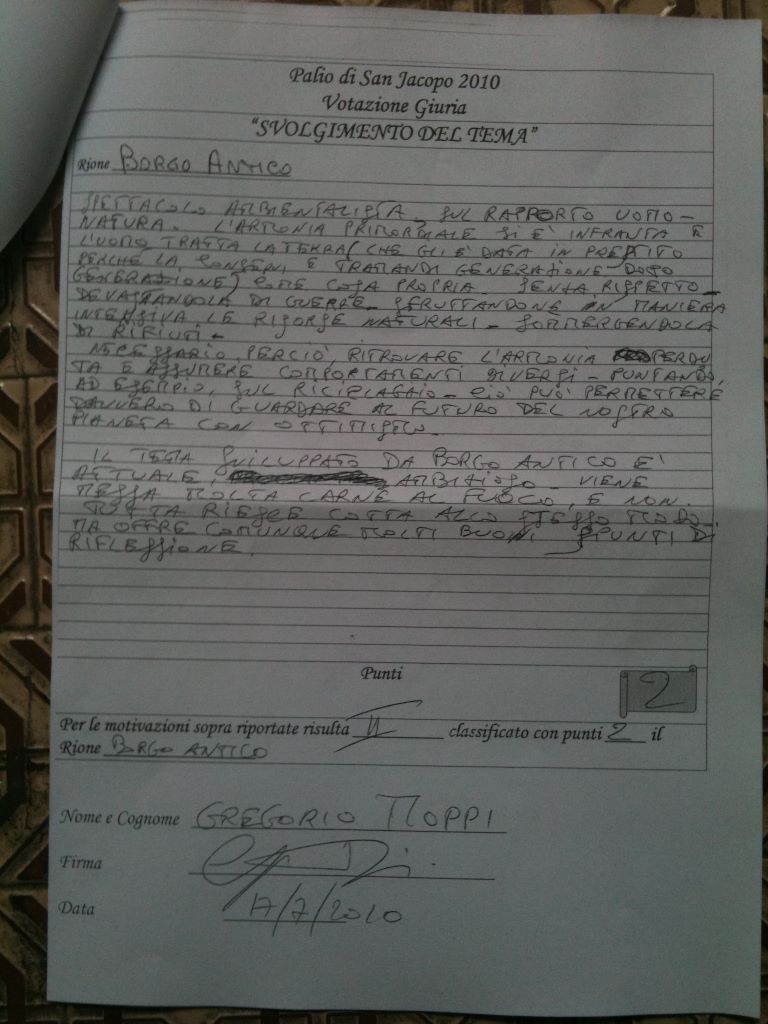 Palio di San Jacopo 2010
Votazione Giuria
"SVOLGIMENTO DEL TEMA"
Rione BORGO ANTICO
SPETTACOLO AMBIENTALISTA. SUL RAPPORTO UOMO-
NATURA. L'ARMONIA PRIMORDIALE SI È INFRANTA E
L'UOMO TRATTA LA TERRA (CHE GLI È DATA IN PRESTITO
PERCHÉ LA CONSERVI E TRAMANDI GENERAZIONE DOPO
GENERAZIONE) COME COSA PROPRIA. SENZA RISPETTO -
DEVASTANDOLA DI GUERRE - SFRUTTANDONE IN MANIERA
INTENSIVA LE RISORSE NATURALI - SOMMERGENDOLA
DI RIFIUTI -
NECESSARIO, PERCIÒ, RITROVARE L'ARMONIA PERDU
TA E ASSUMERE COMPORTAMENTI DIVERSI - PUNTANDO,
AD ESEMPIO, SUL RICICLAGGIO - CIÒ PUÒ PERMETTERE
DAVVERO DI GUARDARE AL FUTURO DEL NOSTRO
PIANETA CON OTTIMISMO.
IL TEMA SVILUPPATO DA BORGO ANTICO E'
ATTUALE, AMBIZIOSO - VIENE
MESSA MOLTA CARNE AL FUOCO, E NON
TUTTA RIESCE COTTA ALLO STESSO MODO.
MA OFFRE COMUNQUE MOLTI BUONI SPUNTI DI
RIFLESSIONE.
Punti
2
Per le motivazioni sopra riportate risulta II classificato con punti 2 il
Rione BORGO ANTICO
Nome e Cognome GREGORIO MOPPI
Firma
Data 17/7/2010